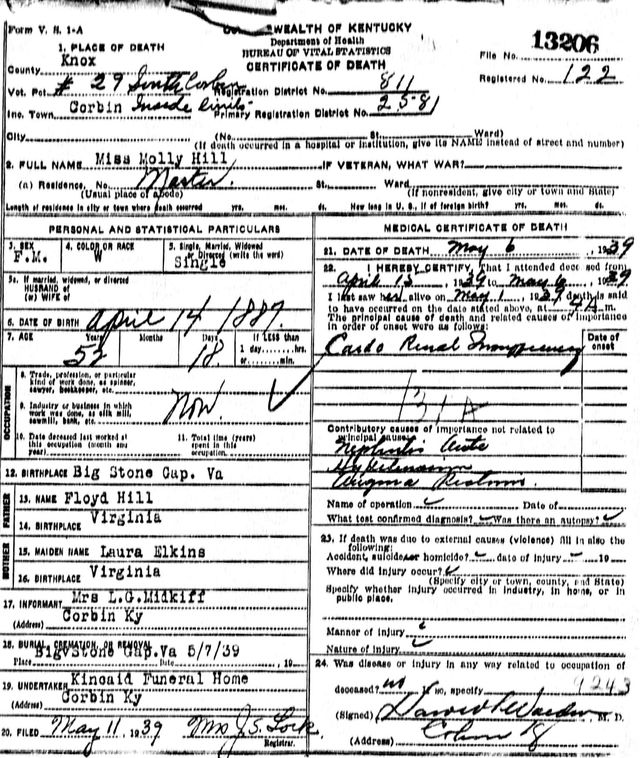 Form V. S. 1-A
COMMONWEALTH OF KENTUCKY
Department of Health
BUREAU OF VITAL STATISTICS
CERTIFICATE OF DEATH
File No. 13206
Registered No. 122
1. PLACE OF DEATH
County Knox
Vot. Pct # 29 South Corbin Registration District No. 811
Inc. Town Corbin Inside limits Primary Registration District No. 2581
City (No. St. Ward)
(If death occurred in a hospital or institution, give its NAME instead of street and number)
2. FULL NAME Miss Molly Hill IF VETERAN, WHAT WAR?
(a) Residence, No. Master. St. Ward
(Usual place of abode) (If nonresident, give city or town and State)
Length of residence in city or town where death occurred yrs. mos. ds. How long in U. S., if of foreign birth? yrs. mos. ds.
PERSONAL AND STATISTICAL PARTICULARS
3. SEX F.M.
4. COLOR OR RACE W
5. Single, Married, Widowed or Divorced (write the word) Single
5a. If married, widowed, or divorced
HUSBAND of
(or) WIFE of
6. DATE OF BIRTH April 14 1887
7. AGE Years 52 Months Days 18 If LESS than
1 day......hrs.
or......min.
OCCUPATION
8. Trade, profession, or particular
kind of work done, as spinner,
sawyer, bookkeeper, etc.
Non
9. Industry or business in which
work was done, as silk mill,
sawmill, bank, etc.
10. Date deceased last worked at
this occupation (month and
year)
11. Total time (years)
spent in this
occupation
12. BIRTHPLACE Big Stone Gap. Va
FATHER
13. NAME Floyd Hill
14. BIRTHPLACE Virginia
MOTHER
15. MAIDEN NAME Laura Elkins
16. BIRTHPLACE Virginia
17. INFORMANT Mrs L.G.Midkiff
(Address) Corbin Ky
18. BURIAL, CREMATION OR REMOVAL
Place Big Stone Gap.Va Date 5/7/39, 19
19. UNDERTAKER Kincaid Funeral Home
(Address) Corbin Ky
20. FILED May 11 1939 Mrs J.S. Lock
Registrar.
MEDICAL CERTIFICATE OF DEATH
21. DATE OF DEATH May 6, 1939
22. I HEREBY CERTIFY, That I attended deceased from
April 13, 1939 to May 6, 1939
I last saw her alive on May 1, 1939 death is said
to have occurred on the date stated above, at m.
The principal cause of death and related causes of importance
in order of onset were as follows:
Date of onset
Cardo Renal
131A
Contributory causes of importance not related to
principal cause:
Nephritis Acute
Hypertension
Angina Pectoris
Name of operation Date of
What test confirmed diagnosis? Was there an autopsy?
23. If death was due to external causes (violence) fill in also the
following:
Accident, suicide or homicide? date of injury 19
Where did injury occur?
(Specify city or town, county, and State)
Specify whether injury occurred in industry, in home, or in
public place.
Manner of injury
Nature of injury
24. Was disease or injury in any way related to occupation of
deceased? no If so, specify 9243
(Signed) M. D.
(Address) Corbin Ky